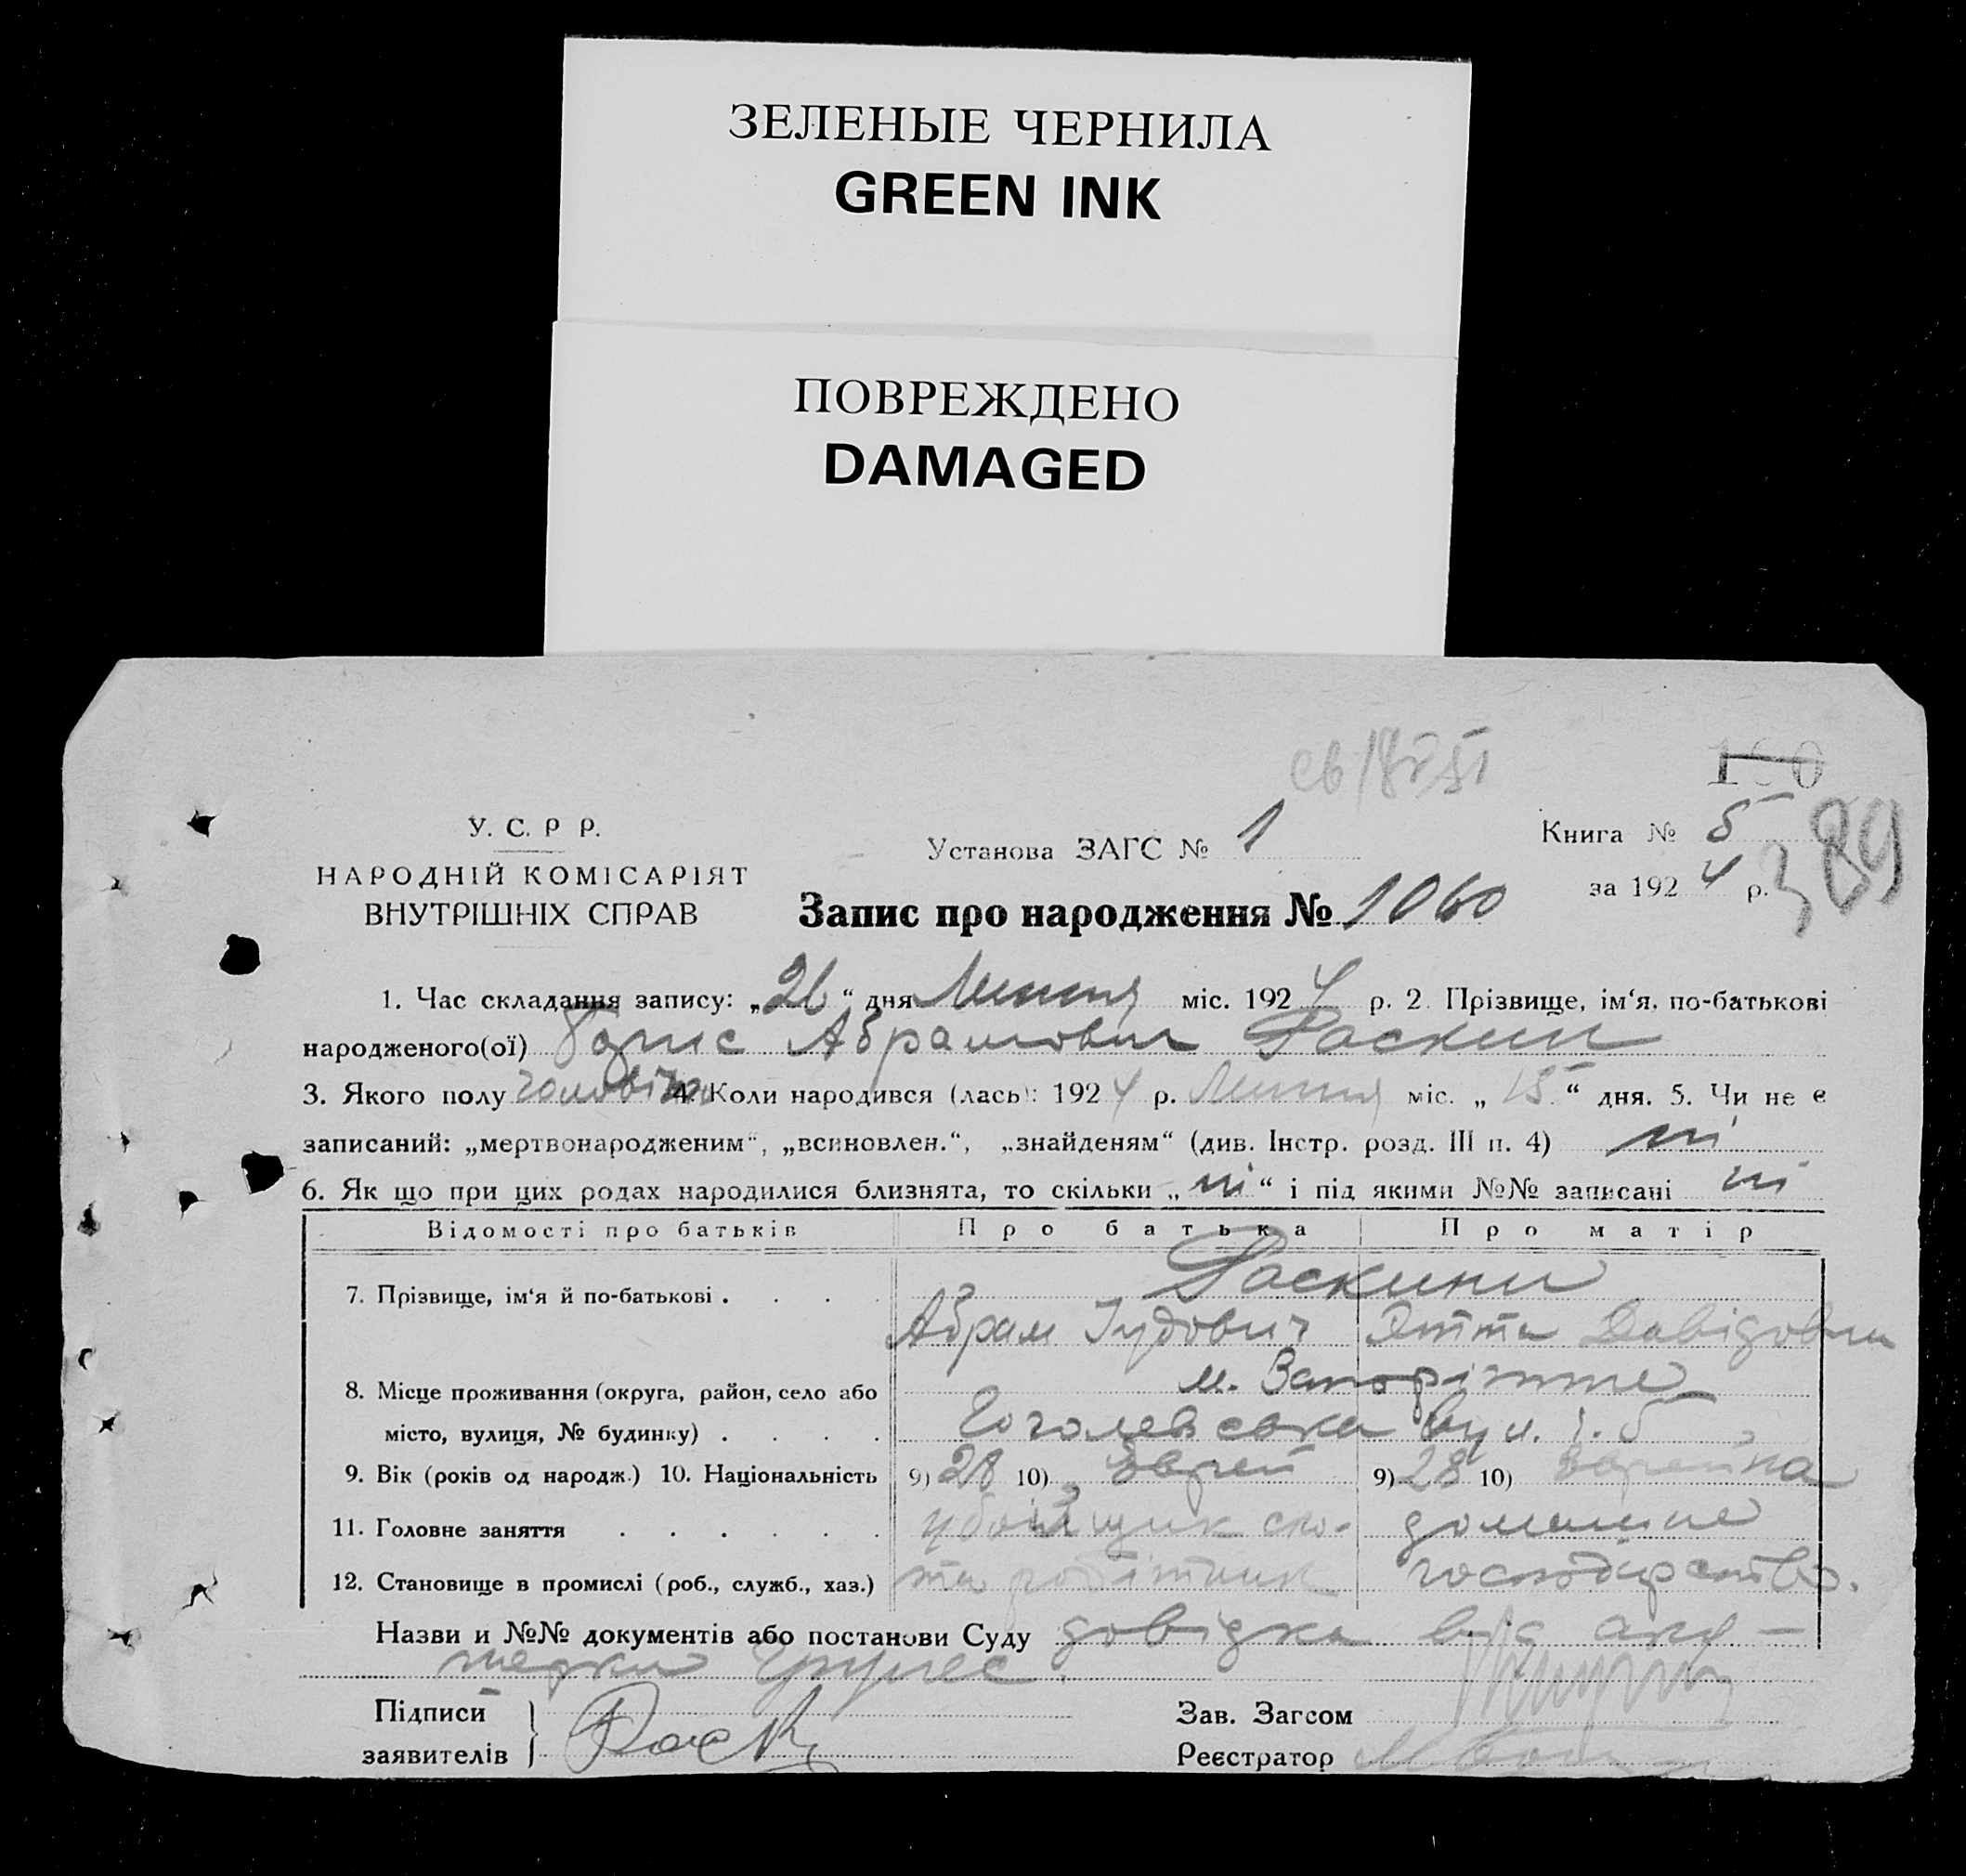 ЗЕЛЕНЫЕ ЧЕРНИЛА
GREEN INK
ПОВРЕЖДЕНО
DAMAGED
190
У. С. Р Р.
НАРОДНІЙ КОМІСАРІЯТ
ВНУТРІШНІХ СПРАВ
Установа ЗАГС № 1
Книга № 5
за 1924 р.
389
Запис про народження № 1060
1. Час складання запису: „26“ дня Липня міс. 1924 р. 2. Прізвище, ім‘я, по-батькові
народженого(ої) Борис Абрамович Раскин
3. Якого полу чоловіч. 4. Коли народився (лась): 1924 р. Липня міс. „15“ дня. 5. Чи не є
записаний: „мертвонародженим“, „всиновлен.“, „знайденям“ (див. Інстр. розд. III п. 4) ні
6. Як що при цих родах народилися близнята, то скільки „ні“ і під якими №№ записані ні
Відомості про батьків Про батька Про матір
7. Прізвище, ім‘я й по-батькові . . . . Раскини
Абрам Іудович Этта Давідовна
8. Місце проживання (округа, район, село або м. Запоріжже
місто, вулиця, № будинку) . . . . Гоголевська вул. 5
9. Вік (років од народж.) 10. Національність 9) 28 10) Еврей 9) 28 10) Еврейка
11. Головне заняття . . . . . . убойщик ско- домашне
12. Становище в промислі (роб., служб., хаз.) та робітник господарство.
Назви и №№ документів або постанови Суду довідка від аку-
шерки
Підписи
заявителів Раск
Зав. Загсом
Реєстратор